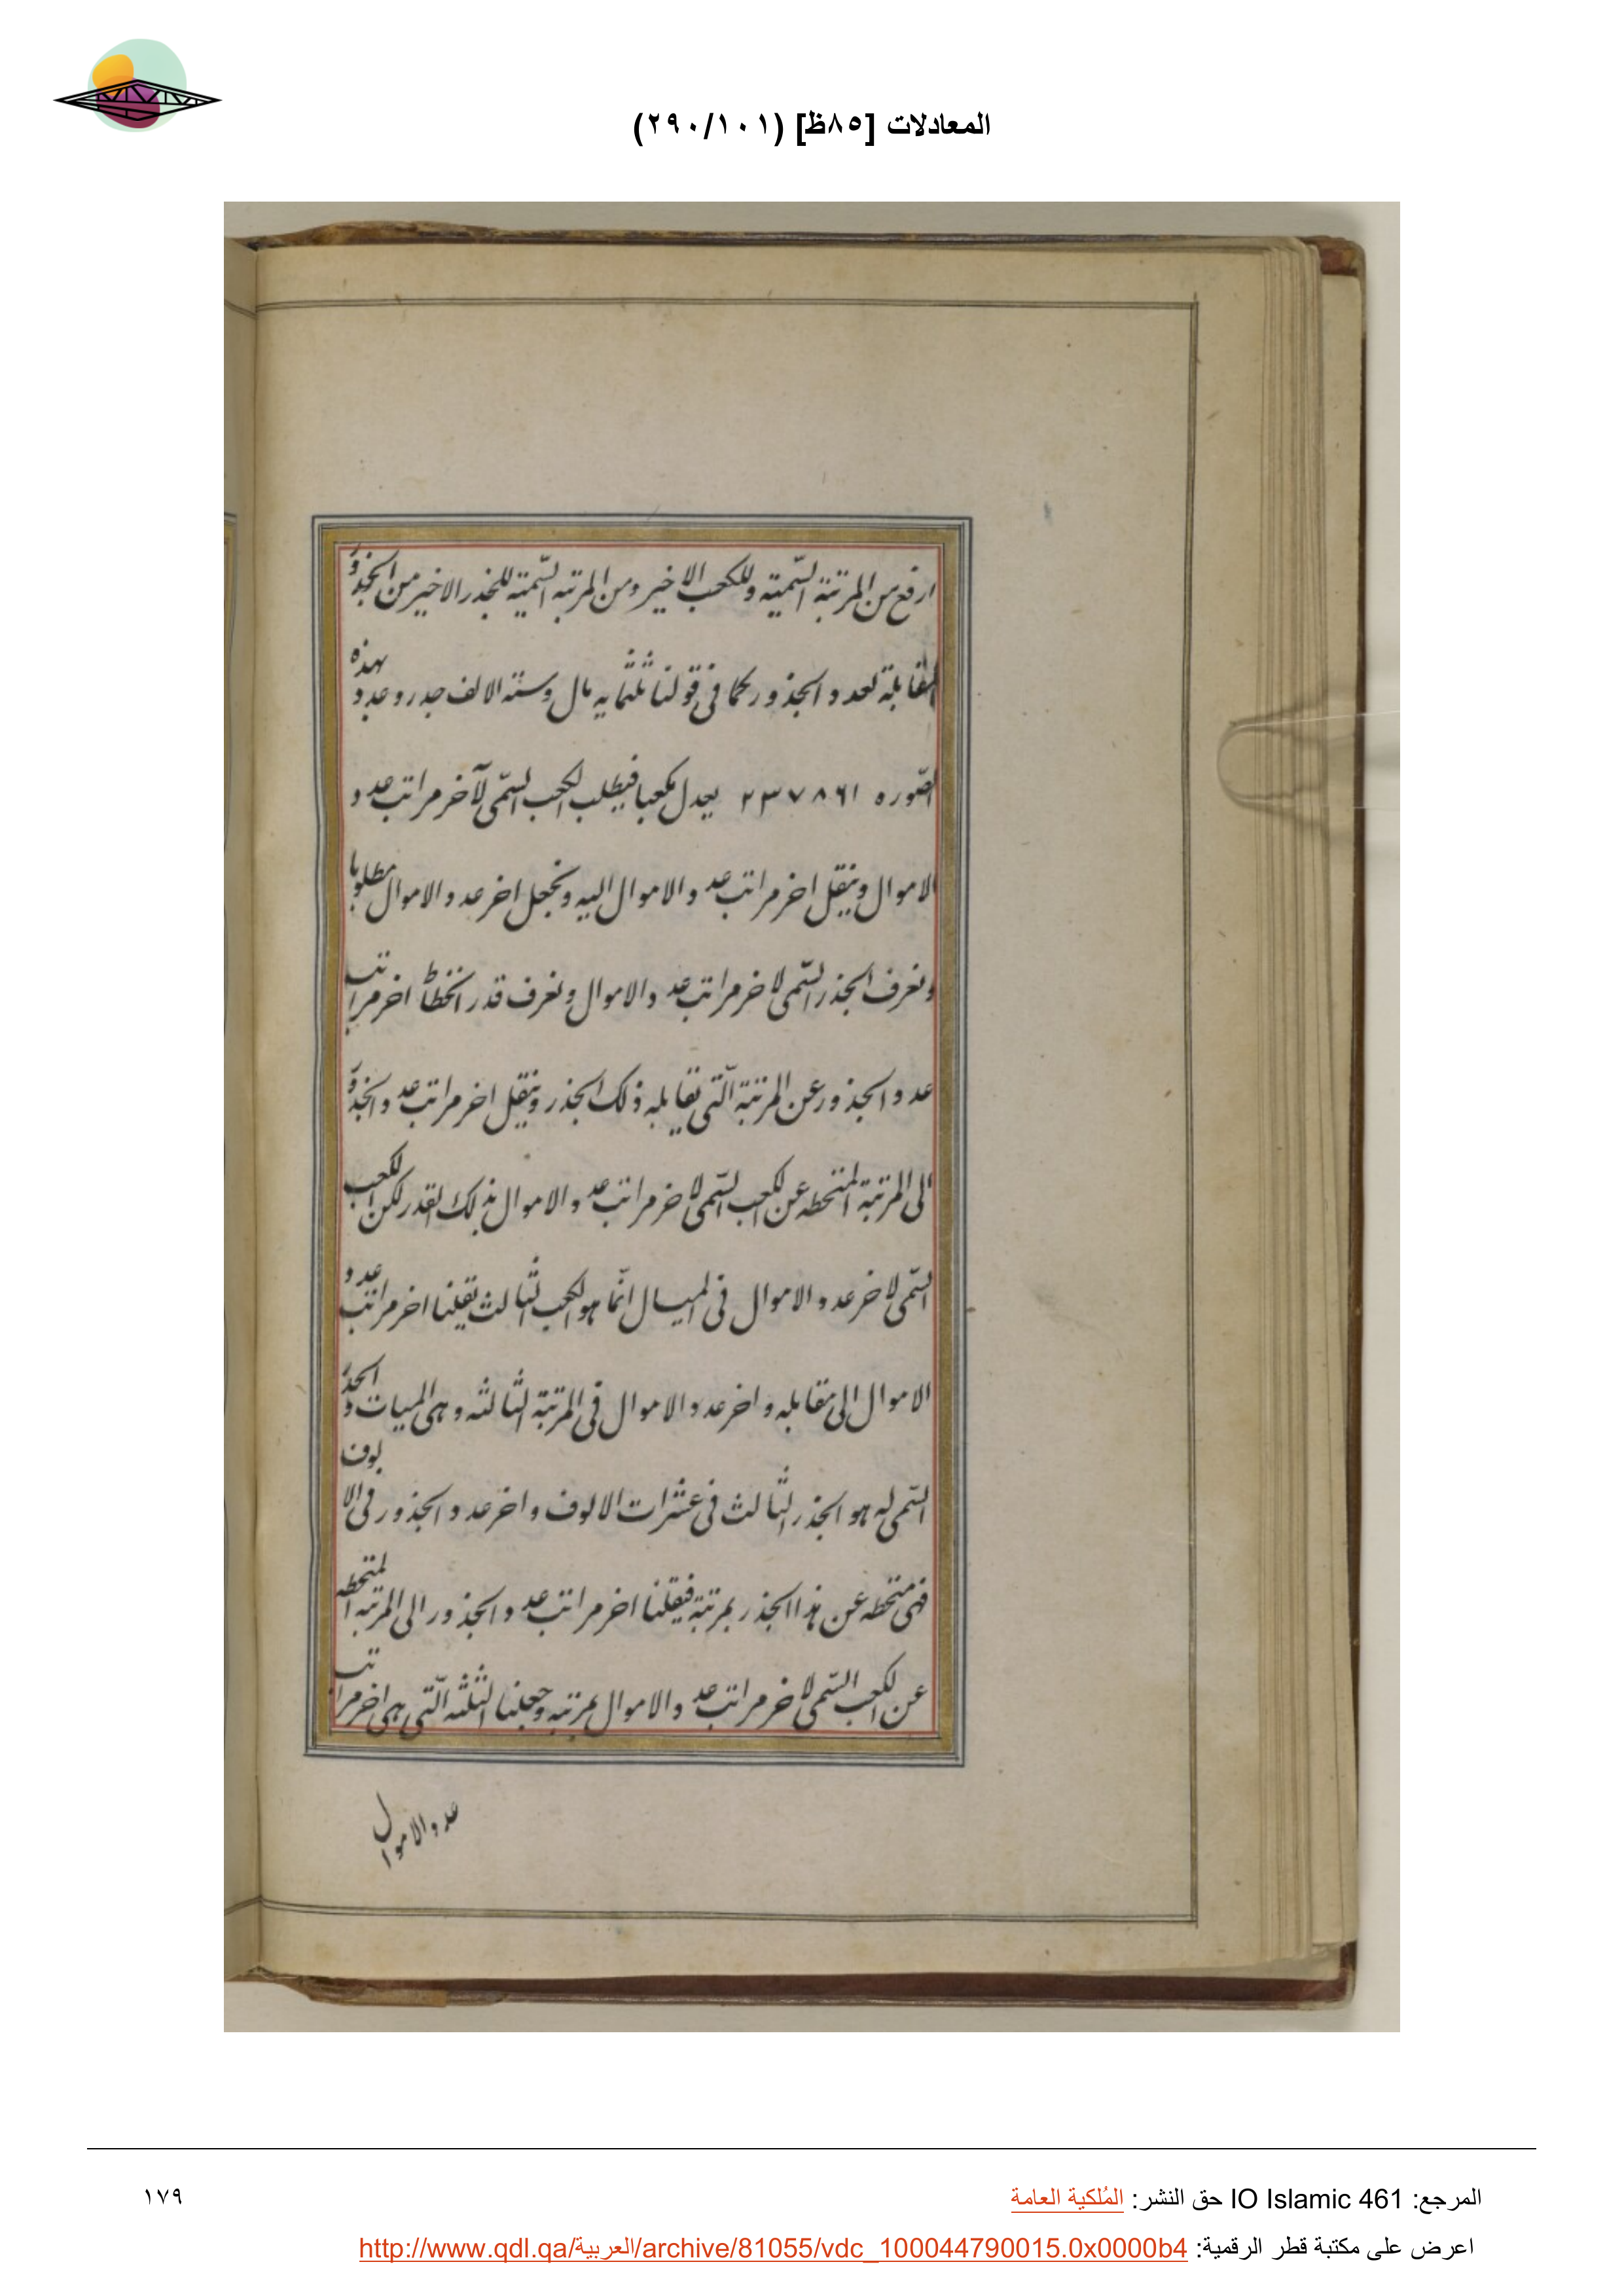 المعادلات [٨٥ظ] (٢٩٠/١٠١)
ارفع من المرتبة السّمية وللكعب الاخير ومن المرتبه السّمية للجذر الاخير من الجذو
المقابلة لعدد الجذور كما فى قولنا ثلثمايه مال وستة الالف جدر وعدد بهذه
الصّوره ٢٣٧٨٦١ يعدل مكعبا فيطلب الكعب السّمى لآخر مراتب عدد
الاموال وينقل اخر مراتب عدد الاموال اليه ونجعل اخر عدد الاموال مطلوبا
ونعرف الجذر السّمى لاخر مراتب عدد الاموال ونعرف قدر انخطاط اخر مراتب
عدد الجذور عن المرتبة الّتى تقابله ذلك الجذر وينقل اخر مراتب عدد الجذو
الى المرتبة المنحطه عن الكعب السّمى لاخر مراتب عدد الاموال بذلك القدر لكن الكعب
السّمى لاخر عدد الاموال فى المسال انّما هو الكعب الثالث نقلنا اخر مراتب عدد
الاموال الى مقابله واخر عدد الاموال فى المرتبة الثالثه وهى الميات والجذر
السّمى له هو الجذر الثالث فى عشرات الالوف واخر عدد الجذور فى الالوف
فهى منحطه عن هذا الجذر بمرتبة فيقلنا اخر مراتب عدد الجذور الى المرتبه المنحطه
عن الكعب السّمى لاخر مراتب عدد الاموال بمرتبه وجعلنا الثلثه الّتى هى اخر مراتب
عدد الاموال
المرجع: IO Islamic 461 حق النشر: المُلكية العامة
١٧٩
اعرض على مكتبة قطر الرقمية: http://www.qdl.qa/العربية/archive/81055/vdc_100044790015.0x0000b4